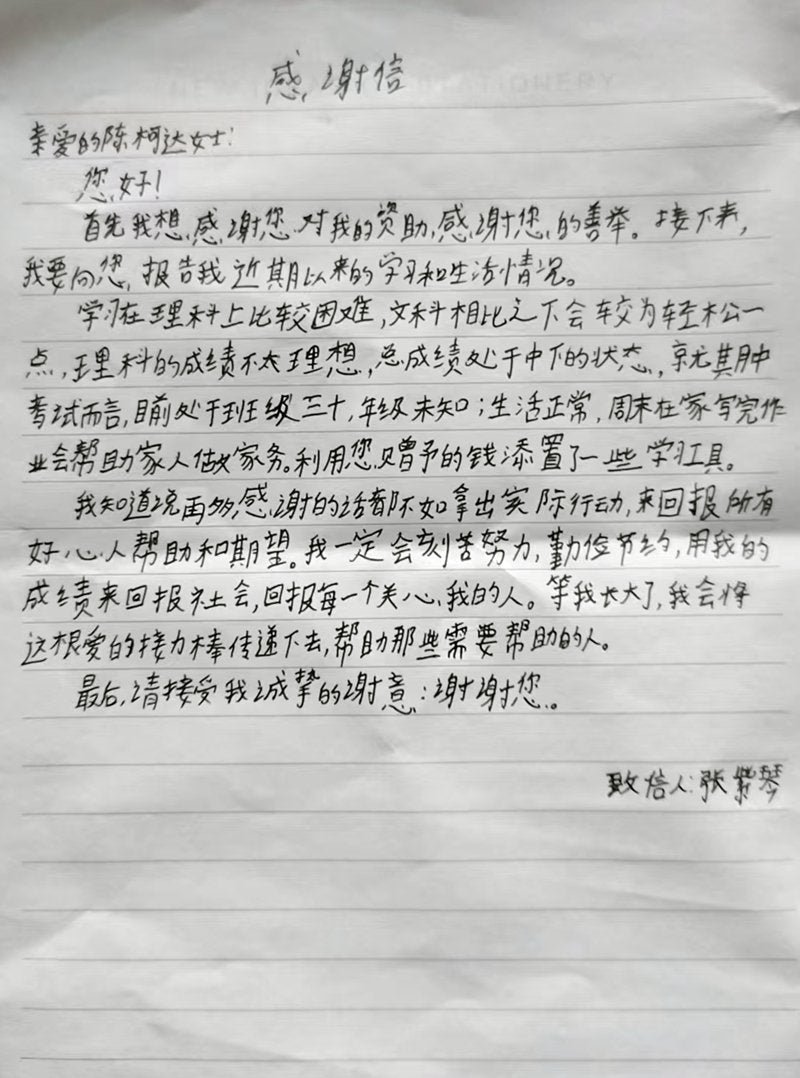 感谢信
亲爱的陈柯达女士：
您好！
首先我想感谢您对我的资助，感谢您的善举。接下来，
我要向您报告我近期以来的学习和生活情况。
学习在理科上比较困难，文科相比之下会较为轻松一
点，理科的成绩不太理想，总成绩处于中下的状态，就尤其期中
考试而言，目前处于班级三十，年级未知；生活正常，周末在家写完作
业会帮助家人做家务。利用您赠予的钱添置了一些学习工具。
我知道说再多感谢的话都不如拿出实际行动，来回报所有
好心人帮助和期望。我一定会刻苦努力，勤俭节约，用我的
成绩来回报社会，回报每一个关心我的人。等我长大了，我会将
这根爱的接力棒传递下去，帮助那些需要帮助的人。
最后，请接受我诚挚的谢意：谢谢您。
致信人：张紫琴